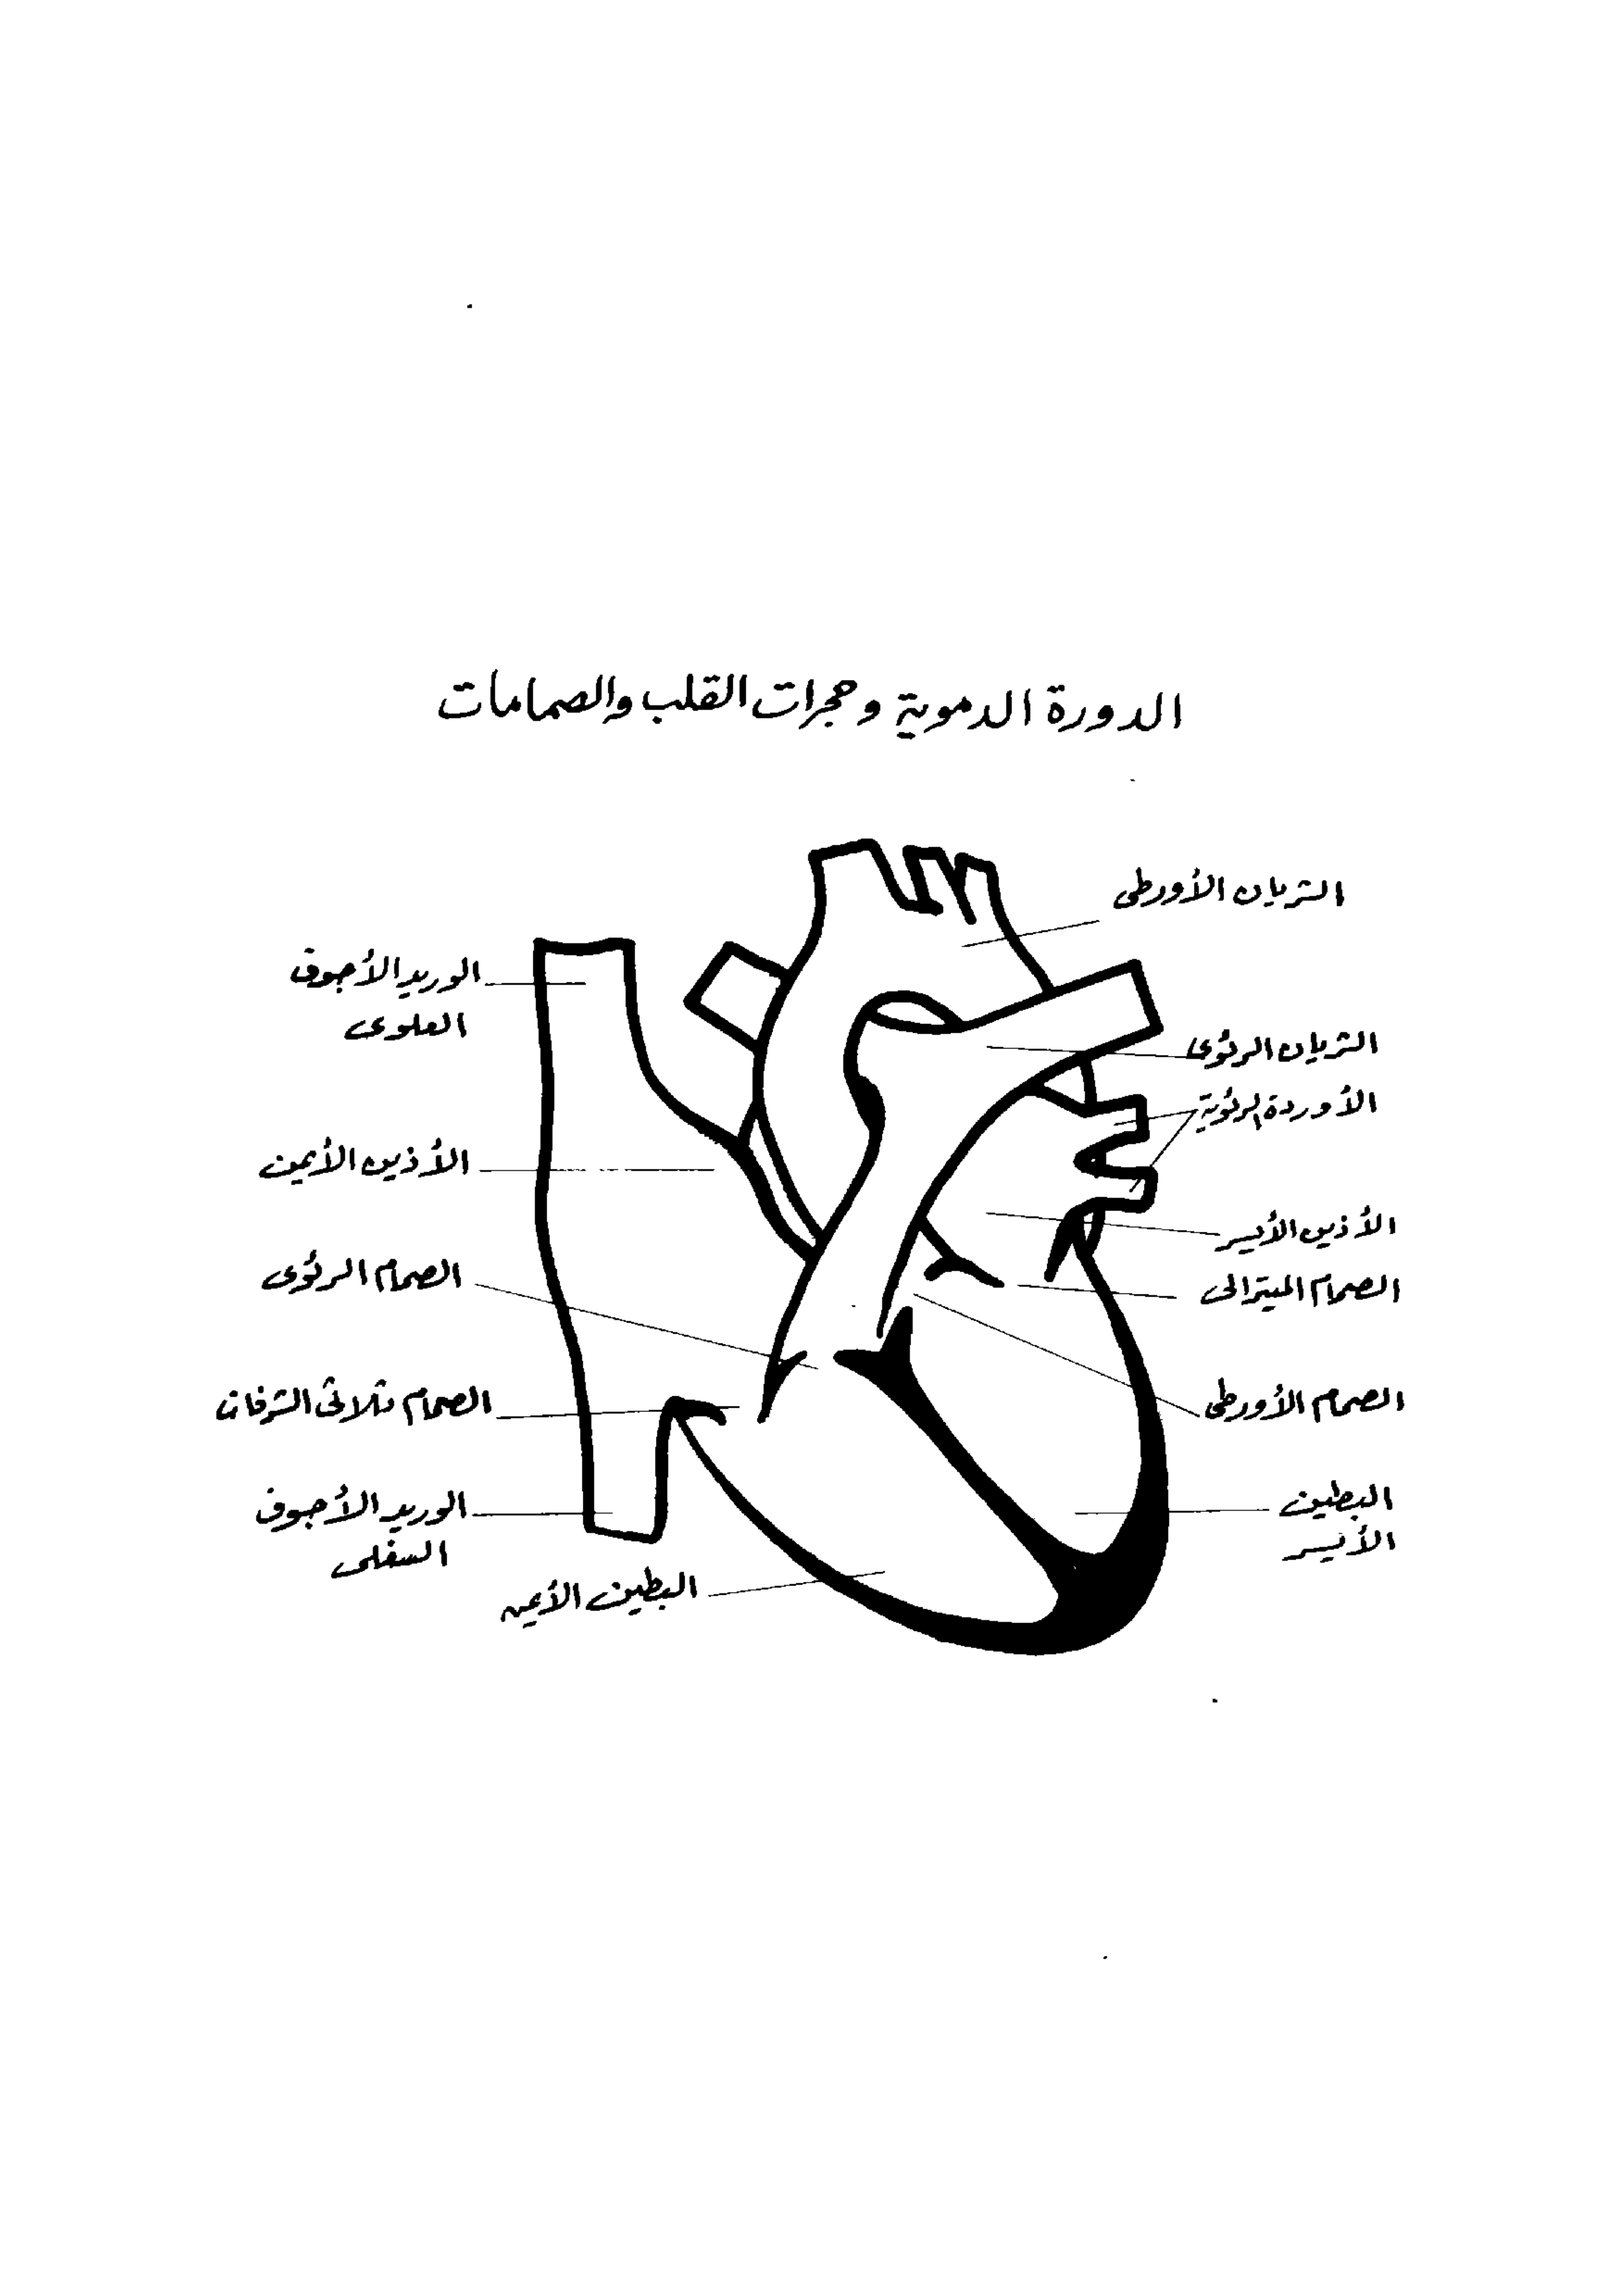 الدورة الدموية وحجرات القلب والصمامات
الشريان الأورطى
الوريد الأجوف
العلوى
الشريان الرئوى
الأوردة الرئوية
الأذين الأيمن
الأذين الأيسر
الصمام الرئوى
الصمام الميترالى
الصمام ثلاثى الشرفات
الصمام الأورطى
الوريد الأجوف
السفلى
البطين
الأيسر
البطين الأيمن